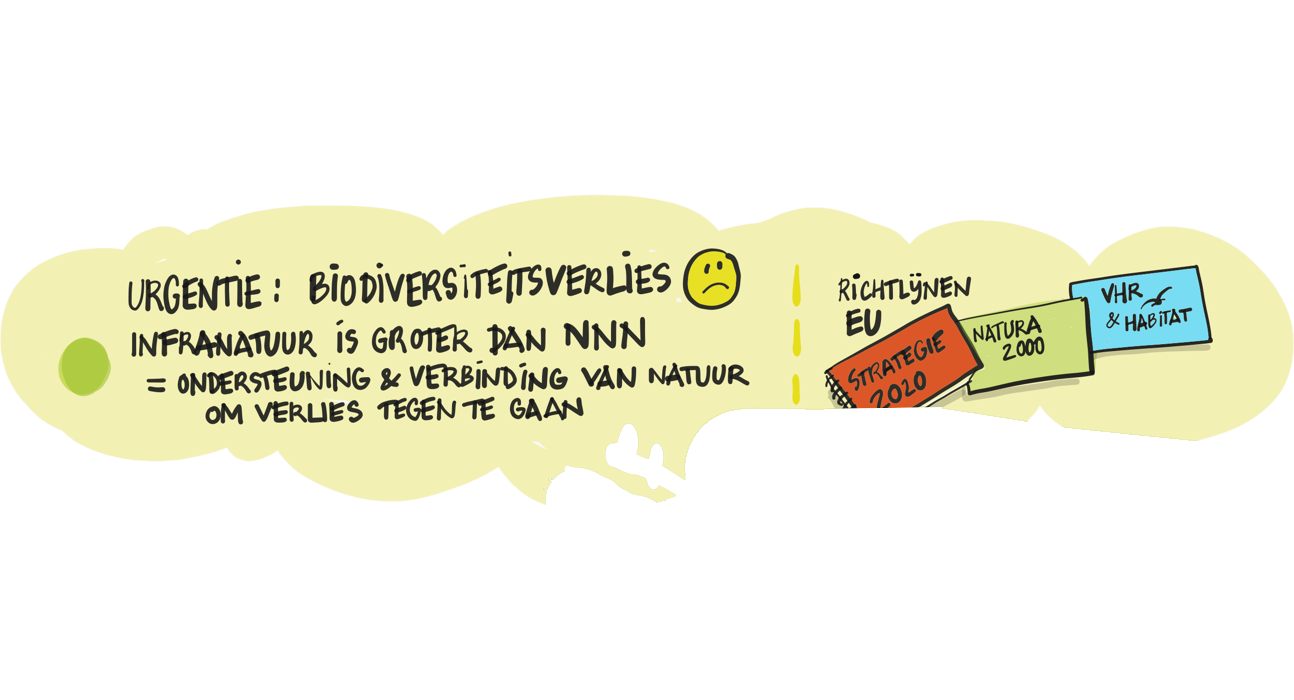 URGENTIE: BIODIVERSITEITSVERLIES
INFRANATUUR IS GROTER DAN NNN
= ONDERSTEUNING & VERBINDING VAN NATUUR
OM VERLIES TEGEN TE GAAN
RICHTLIJNEN
EU
STRATEGIE
2020
NATURA
2000
VHR
& HABITAT